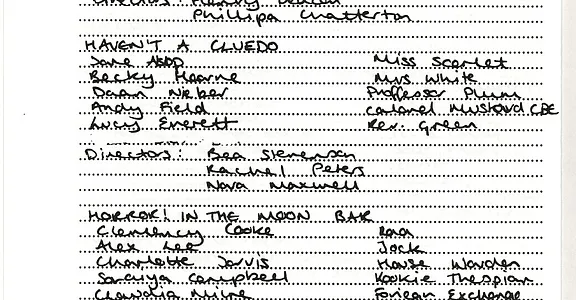 Phillipa Chatterton
HAVEN'T A CLUEDO
Jane Miss Scarlet
Becky Hearne Mrs White
Nieber Proffessor Plum
Andy Field Colonel Mustard CBE
Lucy Everett Rev. Green
Directors: Bea Stevenson
Rachel Peters
Nova Maxwell
HORROR! IN THE MOON BAR
Clemency Cooke
Alex Lee Jack
Charlotte Jarvis House Warden
Campbell Kookie Thespian
Claudia Milne Foriegn Exchange